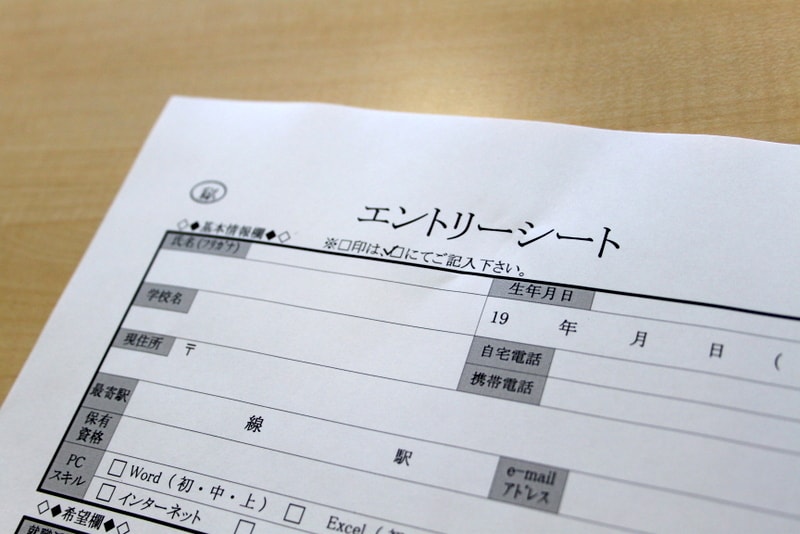 ㊙
エントリーシート
◇◆基本情報欄◆◇
※□印は、☑にてご記入下さい。
氏名(フリガナ)
生年月日
学校名
19 年 月 日 (
現住所
〒
自宅電話
携帯電話
最寄駅
線 駅
保有
資格
e-mail
アドレス
PC
スキル
□ Word（初・中・上） □ Excel（初
□ インターネット □
◇◆希望欄◆◇